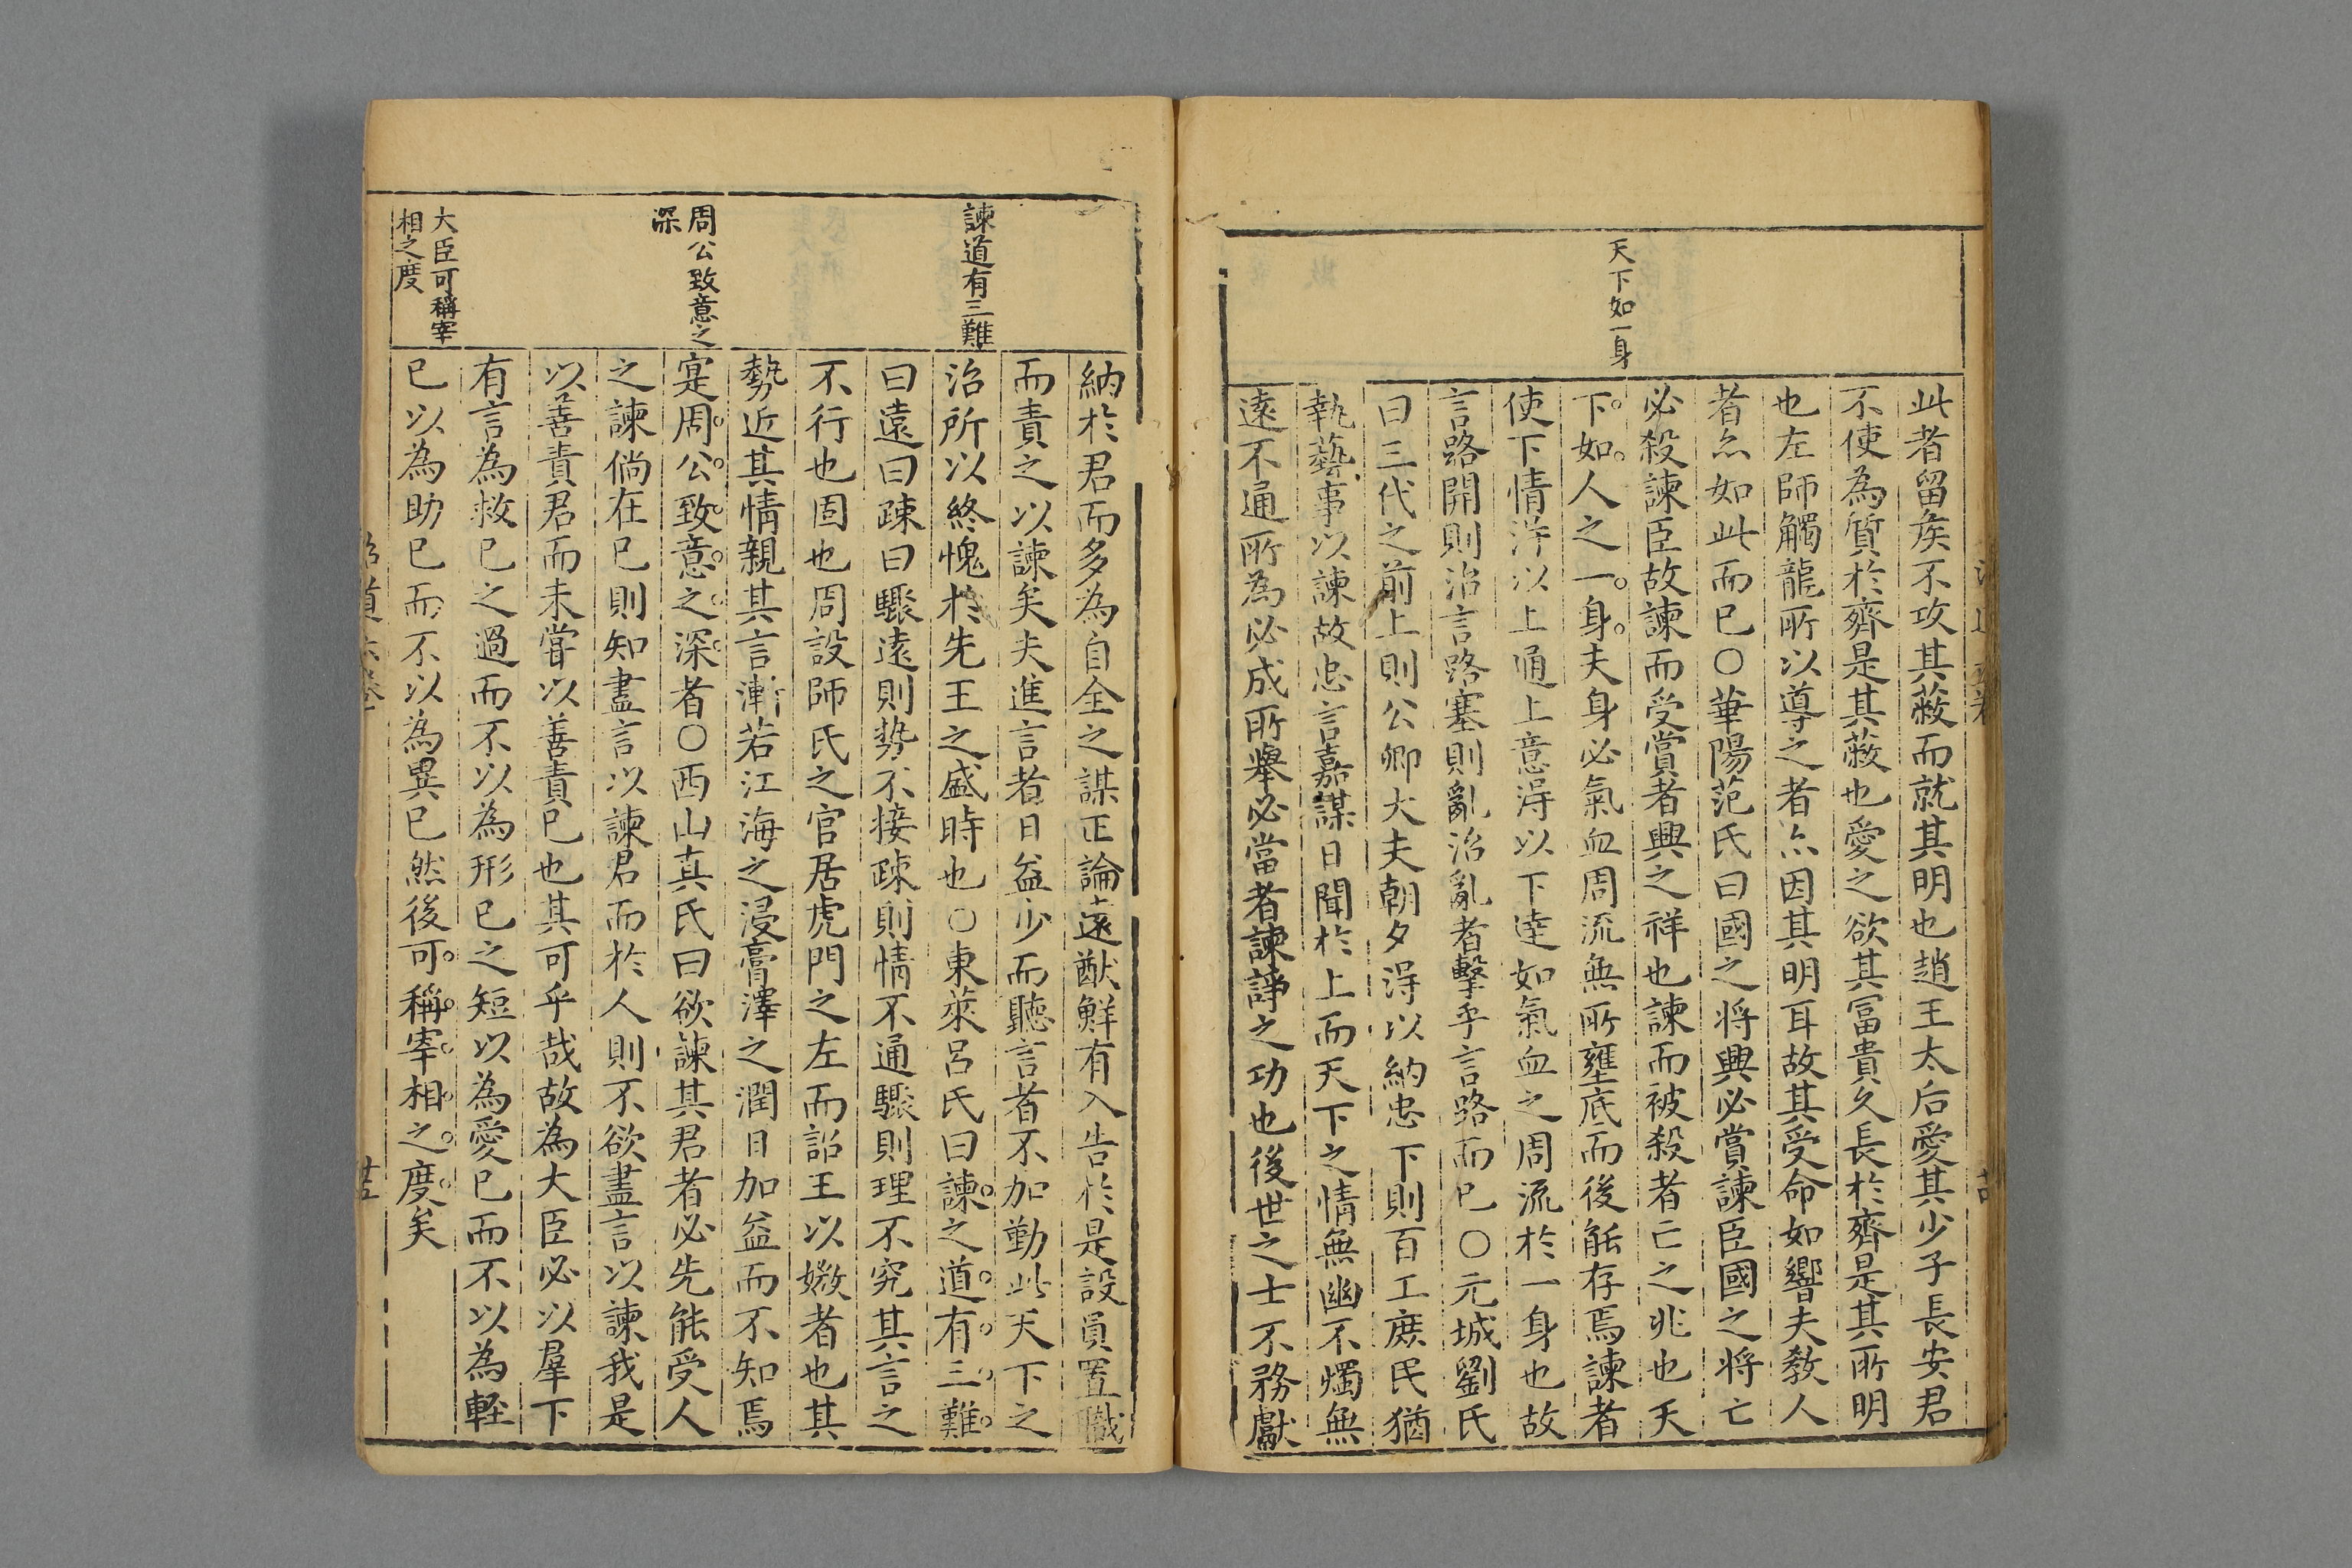 天下如一身
此者留矦不攻其蔽而就其明也趙王太后愛其少子長安君
不使為質於齊是其蔽也愛之欲其冨貴久長於齊是其所明
也左師觸龍所以導之者亦因其明耳故其受命如響夫教人
者亦如此而已○華陽范氏曰國之将興必賞諫臣國之将亡
必殺諫臣故諫而受賞者興之祥也諫而被殺者亡之兆也天
下如人之一身夫身必氣血周流無所壅底而後能存焉諫者
使下情淂以上通上意淂以下達如氣血之周流於一身也故
言路開則治言路塞則亂治亂者擊乎言路而已○元城劉氏
曰三代之前上則公卿大夫朝夕淂以納忠下則百工庶民猶
執藝事以諫故忠言嘉謀日聞於上而天下之情無幽不燭無
遠不通所為必成所舉必當者諫諍之功也後世之士不務獻
諫道有三難
周公致意之
深
大臣可稱宰
相之度
納於君而多為自全之謀正論遠猷鮮有入告於是設員置職
而責之以諫矣夫進言者日益少而聽言者不加勤此天下之
治所以終愧於先王之盛時也○東萊呂氏曰諫之道有三難
曰遠曰疎曰驟遠則势不接疎則情不通驟則理不究其言之
不行也固也周設師氏之官居虎門之左而詔王以媺者也其
勢近其情親其言漸若江海之浸膏澤之潤日加益而不知焉
寔周公致意之深者○西山真氏曰欲諫其君者必先能受人
之諫倘在已則知盡言以諫君而於人則不欲盡言以諫我是
以善責君而未嘗以善責已也其可乎哉故為大臣必以羣下
有言為救已之過而不以為形已之短以為愛已而不以為輕
已以為助已而不以為異已然後可稱宰相之度矣